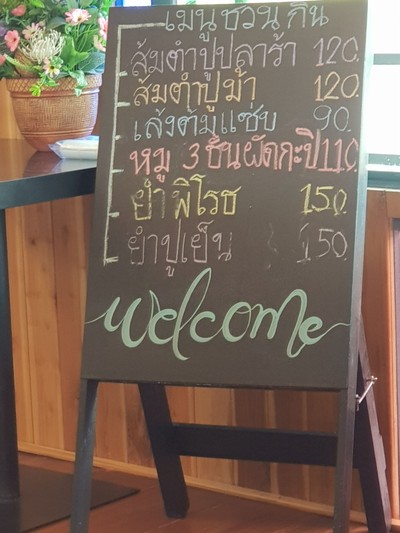 เมนูชวนกิน
ส้มตำปูปลาร้า 120.
ส้มตำปูม้า 120.
เล้งต้มแซ่บ 90.
หมู 3 ชั้นผัดกะปิ 110.
ยำพิโรธ 150.
ยำปูเย็น 150.
welcome